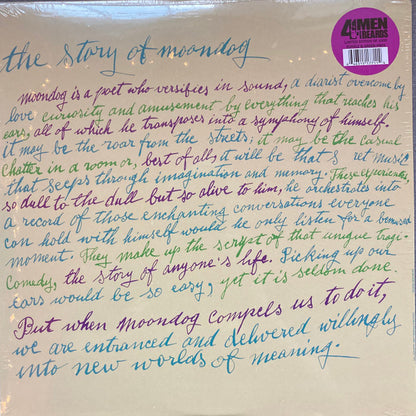 the story of moondog
4 MEN
WITH
BEARDS
LIMITED EDITION OF 1000
moondog is a poet who versifies in sound, a diarist overcome by
love curiosity and amusement by everything that reaches his
ears, all of which he transposes into a symphony of himself.
it may be the roar from the streets; it may be the casual
chatter in a room or, best of all, it will be that s ret music
that seeps through imagination and memory. These esoterica,
so dull to the dull but so alive to him, he orchestrates into
a record of those enchanting conversations everyone
can hold with himself would he only listen for a bemused
moment. They make up the script of that unique tragi-
comedy, the story of anyone's life. Picking up our
ears would be so easy, yet it is seldom done.
But when moondog compels us to do it,
we are entranced and delivered willingly
into new worlds of meaning.